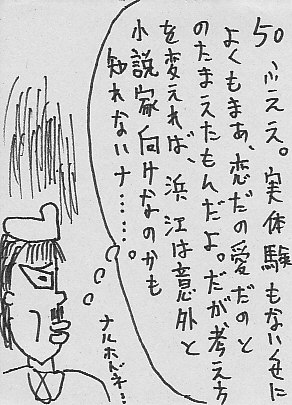 50 ふええ。実体験もない癖に
よくもまあ、恋だの愛だのと
のたまえたもんだよ。だが、考え方
を変えれば、浜江は意外と
小説家向けなのかも
知れないナ……。
ナルホドネ…